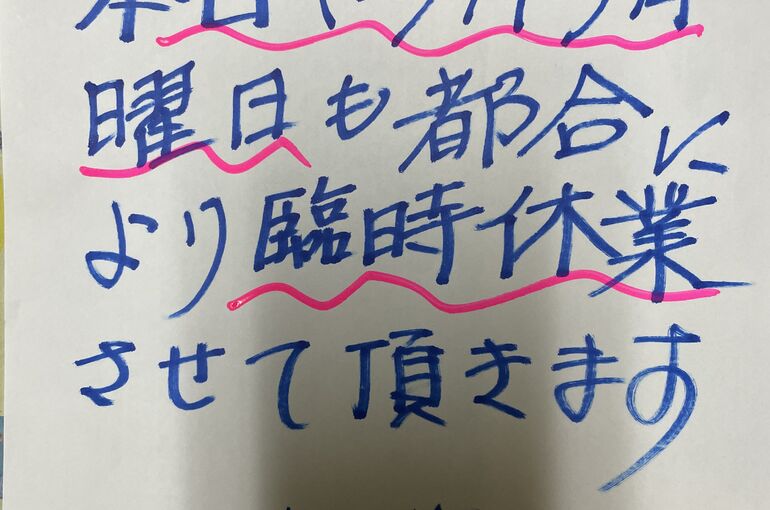 本日
曜日も都合に
より臨時休業
させて頂きます